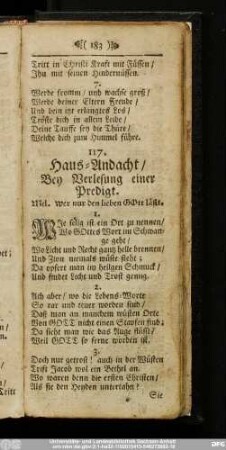 ( 183 )
Tritt in Christi Kraft mit Füssen /
Ihn mit seinen Hindernüssen.
7.
Werde fromm / und wachse groß /
Werde deiner Eltern Freude /
Und dein itzt erlangtes Los /
Tröste dich in allem Leide /
Deine Tauffe sey die Thüre /
Welche dich zum Himmel führe.
117.
Haus-Andacht /
Bey Verlesung einer
Predigt.
Mel. Wer nur den lieben GOtt läßt.
1.
Wie selig ist ein Ort zu nennen /
Wo GOttes Wort im Schwan-
ge geht /
Wo Licht und Recht gantz helle brennen /
Und Zion niemals wüste steht ;
Da opfert man im heilgen Schmuck /
Und findet Licht und Trost genug.
2.
Ach aber / wo die Lebens-Worte
So rar und teuer worden sind /
Daß man an manchem wüsten Orte
Von GOTT nicht einen Stapfen find ;
Da sieht man wie das Auge fließt /
Weil GOTT so ferne worden ist.
3.
Doch nur getrost ! auch in der Wüsten
Trift Jacob wol ein Bethel an.
Wo waren denn die ersten Christen /
Als sie den Heyden unterthan ?
Sie